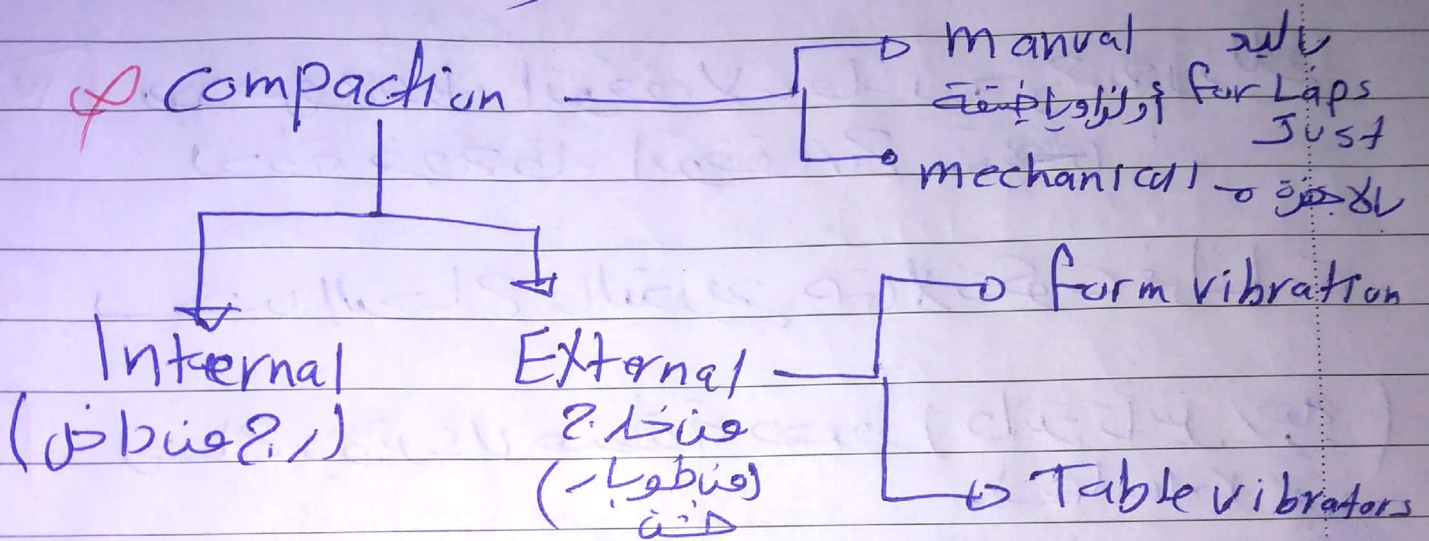 Compaction
manual باليد
أو لزاويا ضيقة for Laps
Just
mechanical بالاجهزة
Internal
(رج من داخل)
External
من خارج
form vibration
Table vibrators